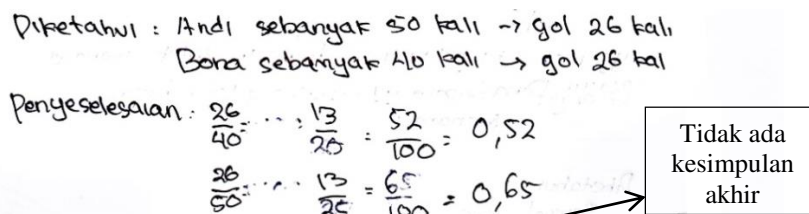 Diketahui : Andi sebanyak 50 kali → gol 26 kali
Bona sebanyak 40 kali → gol 26 kal
Penyeselesaian : 26/40 = ... : 13/25 = 52/100 = 0,52
26/50 = ... 13/2 = 65/100 = 0,65
Tidak ada
kesimpulan
akhir